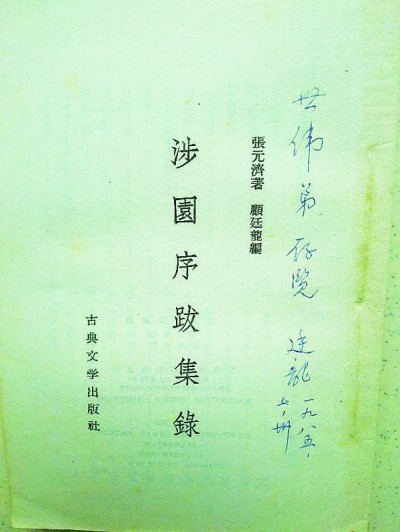 世伟弟 存覽 廷龍 一九八五、
七、卅
張元濟著 顧廷龍編
涉園序跋集錄
古典文学出版社